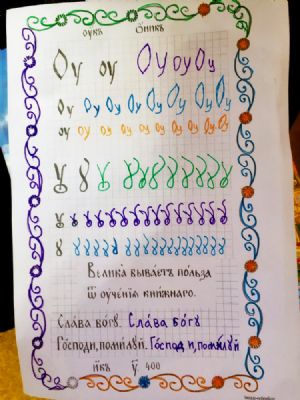 оукъ О҆никъ
Оу оу Оу оу Оу
Оу Оу Оу Оу Оу Оу Оу
оу оу оу оу оу оу оу оу оу
ꙋ ꙋ ꙋ ꙋ ꙋ ꙋ ꙋ ꙋ ꙋ ꙋ ꙋ
ꙋ ꙋ ꙋ ꙋ ꙋ ꙋ ꙋ ꙋ ꙋ ꙋ ꙋ ꙋ ꙋ
ꙋ ꙋ ꙋ ꙋ ꙋ ꙋ ꙋ ꙋ ꙋ ꙋ ꙋ ꙋ
Велика бываетъ польза
ѿ оученїѧ книжнаго.
Сла́ва бо́гꙋ. Сла́ва бо́гꙋ
Го́споди, поми́лꙋй. Го́спод и, поми́лꙋй
и҆́къ ꙋ҃ 400